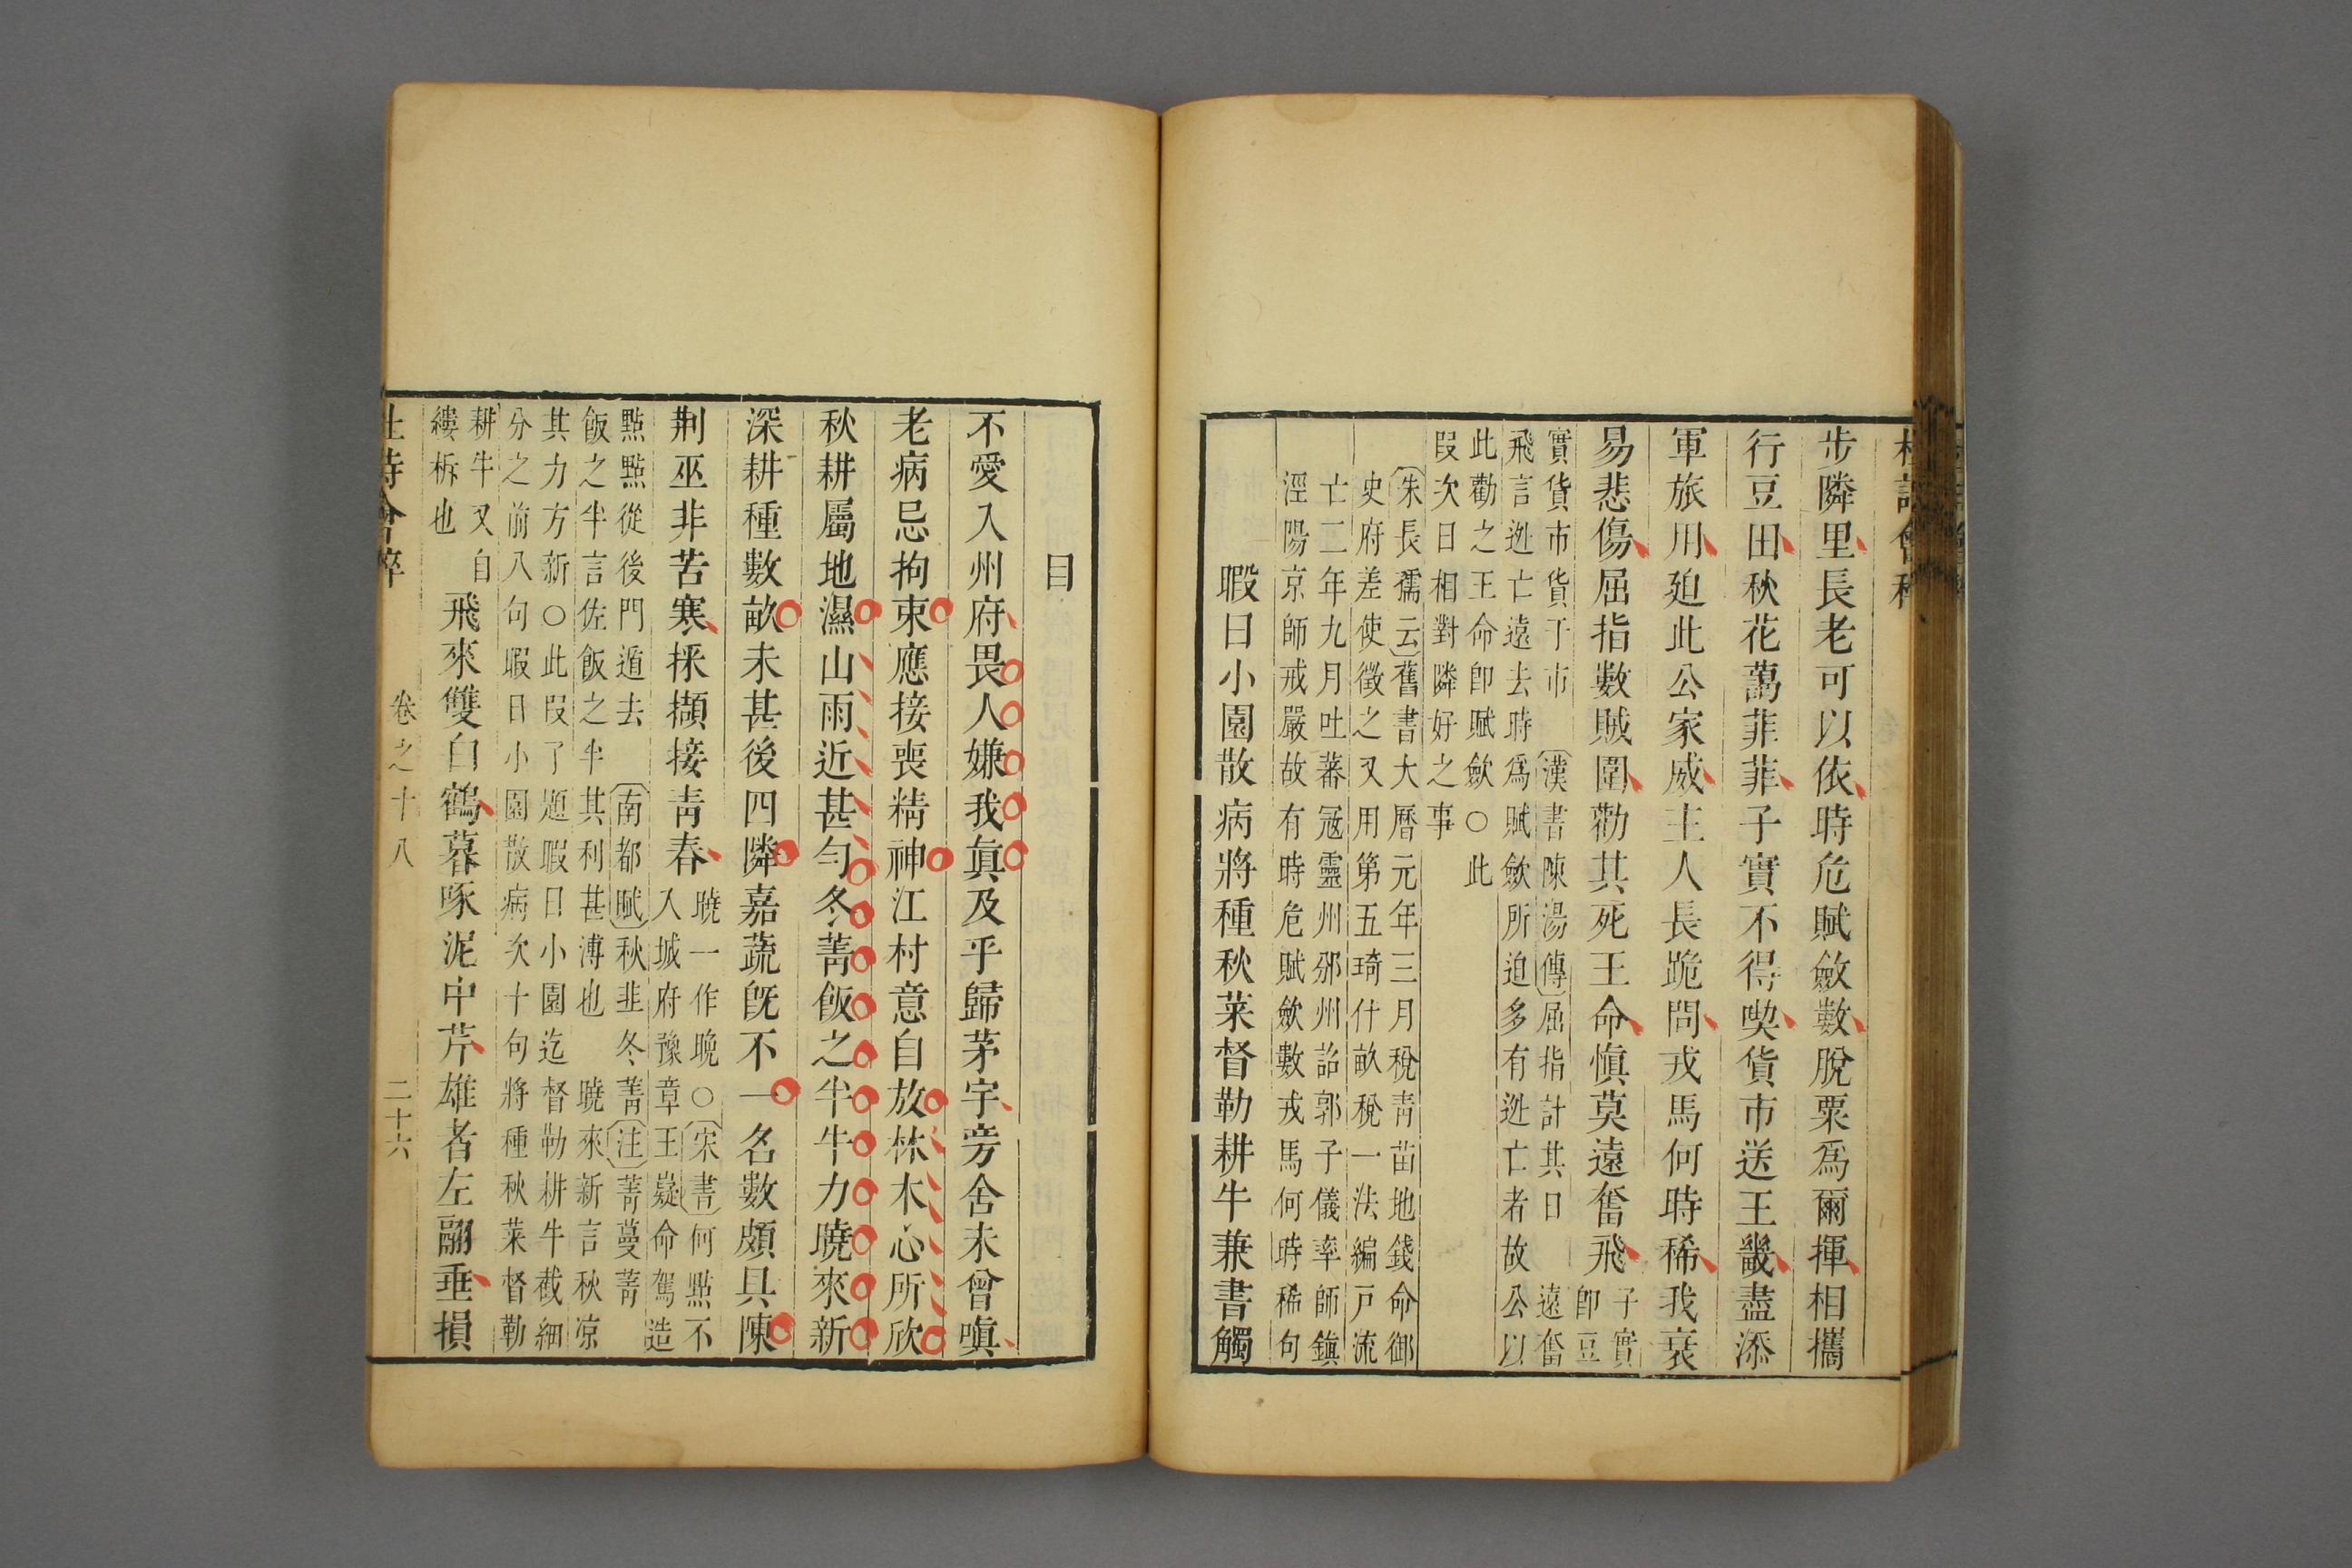 杜詩會稡
步隣里長老可以依時危賦斂數脫粟爲爾揮相攜
行豆田秋花藹菲菲子實不得喫貨市送王畿盡添
軍旅用廹此公家威主人長跪問戎馬何時稀我衰
易悲傷屈指數賊圍勸其死王命愼莫遠奮飛
子實
卽豆
實貨市貨于市 漢書陳湯傳屈指計其日 遠奮
飛言逃亡遠去時爲賦斂所迫多有逃亡者故公以
此勸之王命卽賦斂○此
叚次日相對隣好之事
朱長孺云舊書大曆元年三月稅青苗地錢命御
史府差使徵之又用第五琦什畝稅一法編戸流
亡二年九月吐蕃冦靈州邠州詔郭子儀率師鎮
涇陽京師戒嚴故有時危賦斂數戎馬何時稀句
暇日小園散病將種秋菜督勒耕牛兼書觸
目
不愛入州府畏人嫌我眞及乎歸茅宇旁舍未曾嗔
老病忌拘束應接喪精神江村意自放林木心所欣
秋耕屬地濕山雨近甚勻冬菁飯之半牛力曉來新
深耕種數畝未甚後四隣嘉蔬旣不一名數頗具陳
荆巫非苦寒採擷接靑春
曉一作晚○宋書何點不
入城府豫章王嶷命駕造
點點從後門遁去 南都賦秋韭冬菁注菁蔓菁
飯之半言佐飯之半 其利甚溥也 曉來新言秋凉
其力方新○此叚了題暇日小園迄督勒耕牛截細
分之前八句暇日小園散病次十句將種秋菜督勒
耕牛又自
縷柝也
飛來雙白鶴暮啄泥中芹雄者左翮垂損
杜詩會稡 卷之十八 二十六